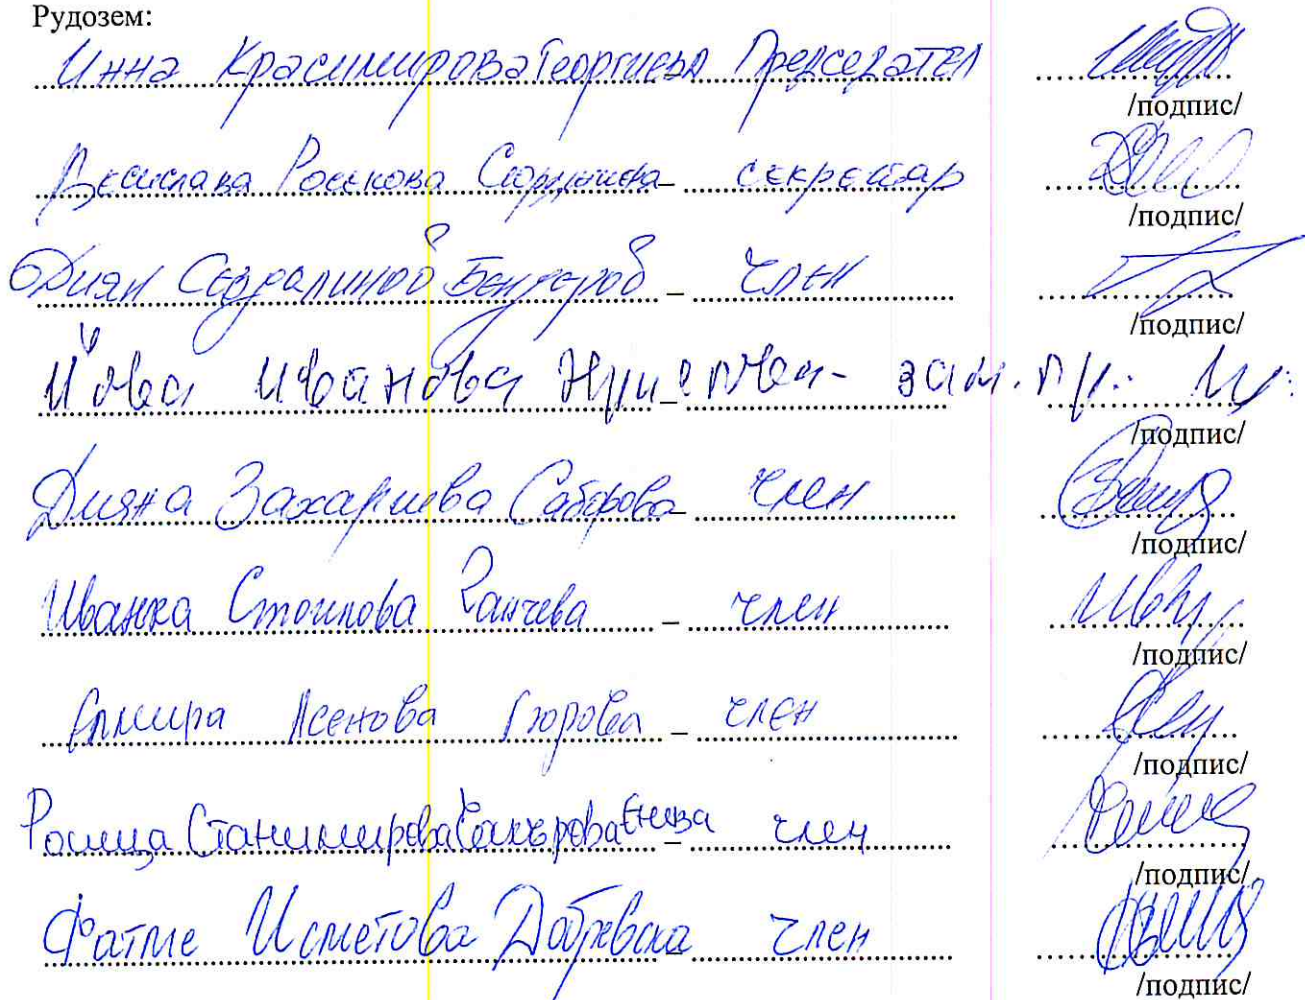 Рудозем:
Инна Красимирова Георгиева Председател
/подпис/
Десислава Росенова - секретар
/подпис/
Диян Сегдалинов Бендеров - член
/подпис/
Йовка Иванова - зам. пр.
/подпис/
Дияна Захариева Саборова - член
/подпис/
Иванка Стоилова Ранчева - член
/подпис/
Елмира Асенова Гюрова - член
/подпис/
Росица Станимирова Чакърова Енева - член
/подпис/
Фатме Исметова Добревска - член
/подпис/